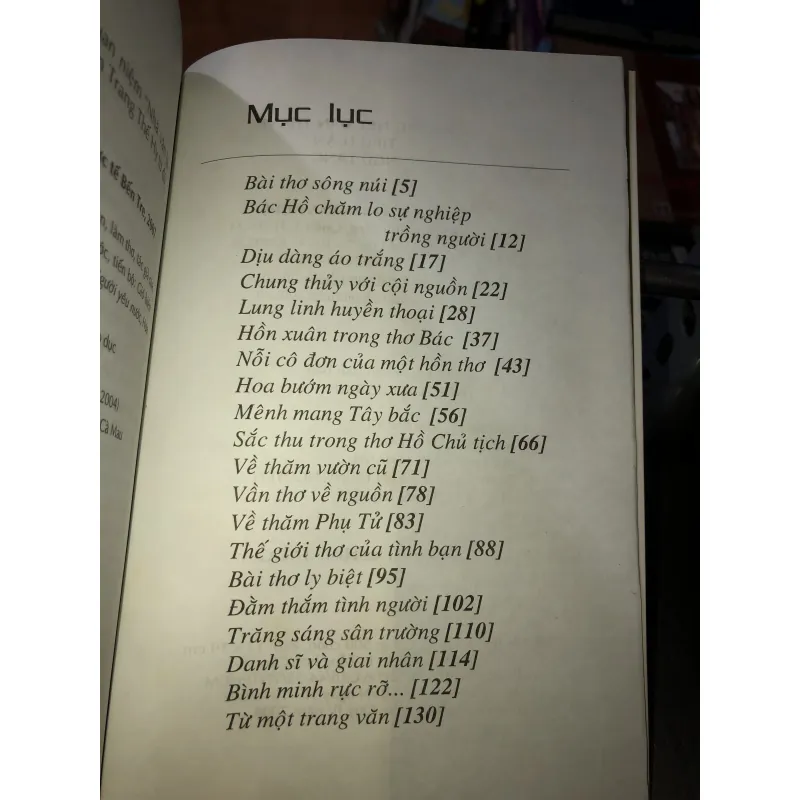 niệm "Nhà văn
Trang Thế Hy
tế Bến Tre, 2001
làm thơ, tác giả
tiến bộ: Giữ
người yêu nước
dục
2004)
Cà Mau
Mục lục
Bài thơ sông núi [5]
Bác Hồ chăm lo sự nghiệp
trồng người [12]
Dịu dàng áo trắng [17]
Chung thủy với cội nguồn [22]
Lung linh huyền thoại [28]
Hồn xuân trong thơ Bác [37]
Nỗi cô đơn của một hồn thơ [43]
Hoa bướm ngày xưa [51]
Mênh mang Tây bắc [56]
Sắc thu trong thơ Hồ Chủ tịch [66]
Về thăm vườn cũ [71]
Vần thơ về nguồn [78]
Về thăm Phụ Tử [83]
Thế giới thơ của tình bạn [88]
Bài thơ ly biệt [95]
Đằm thắm tình người [102]
Trăng sáng sân trường [110]
Danh sĩ và giai nhân [114]
Bình minh rực rỡ... [122]
Từ một trang văn [130]